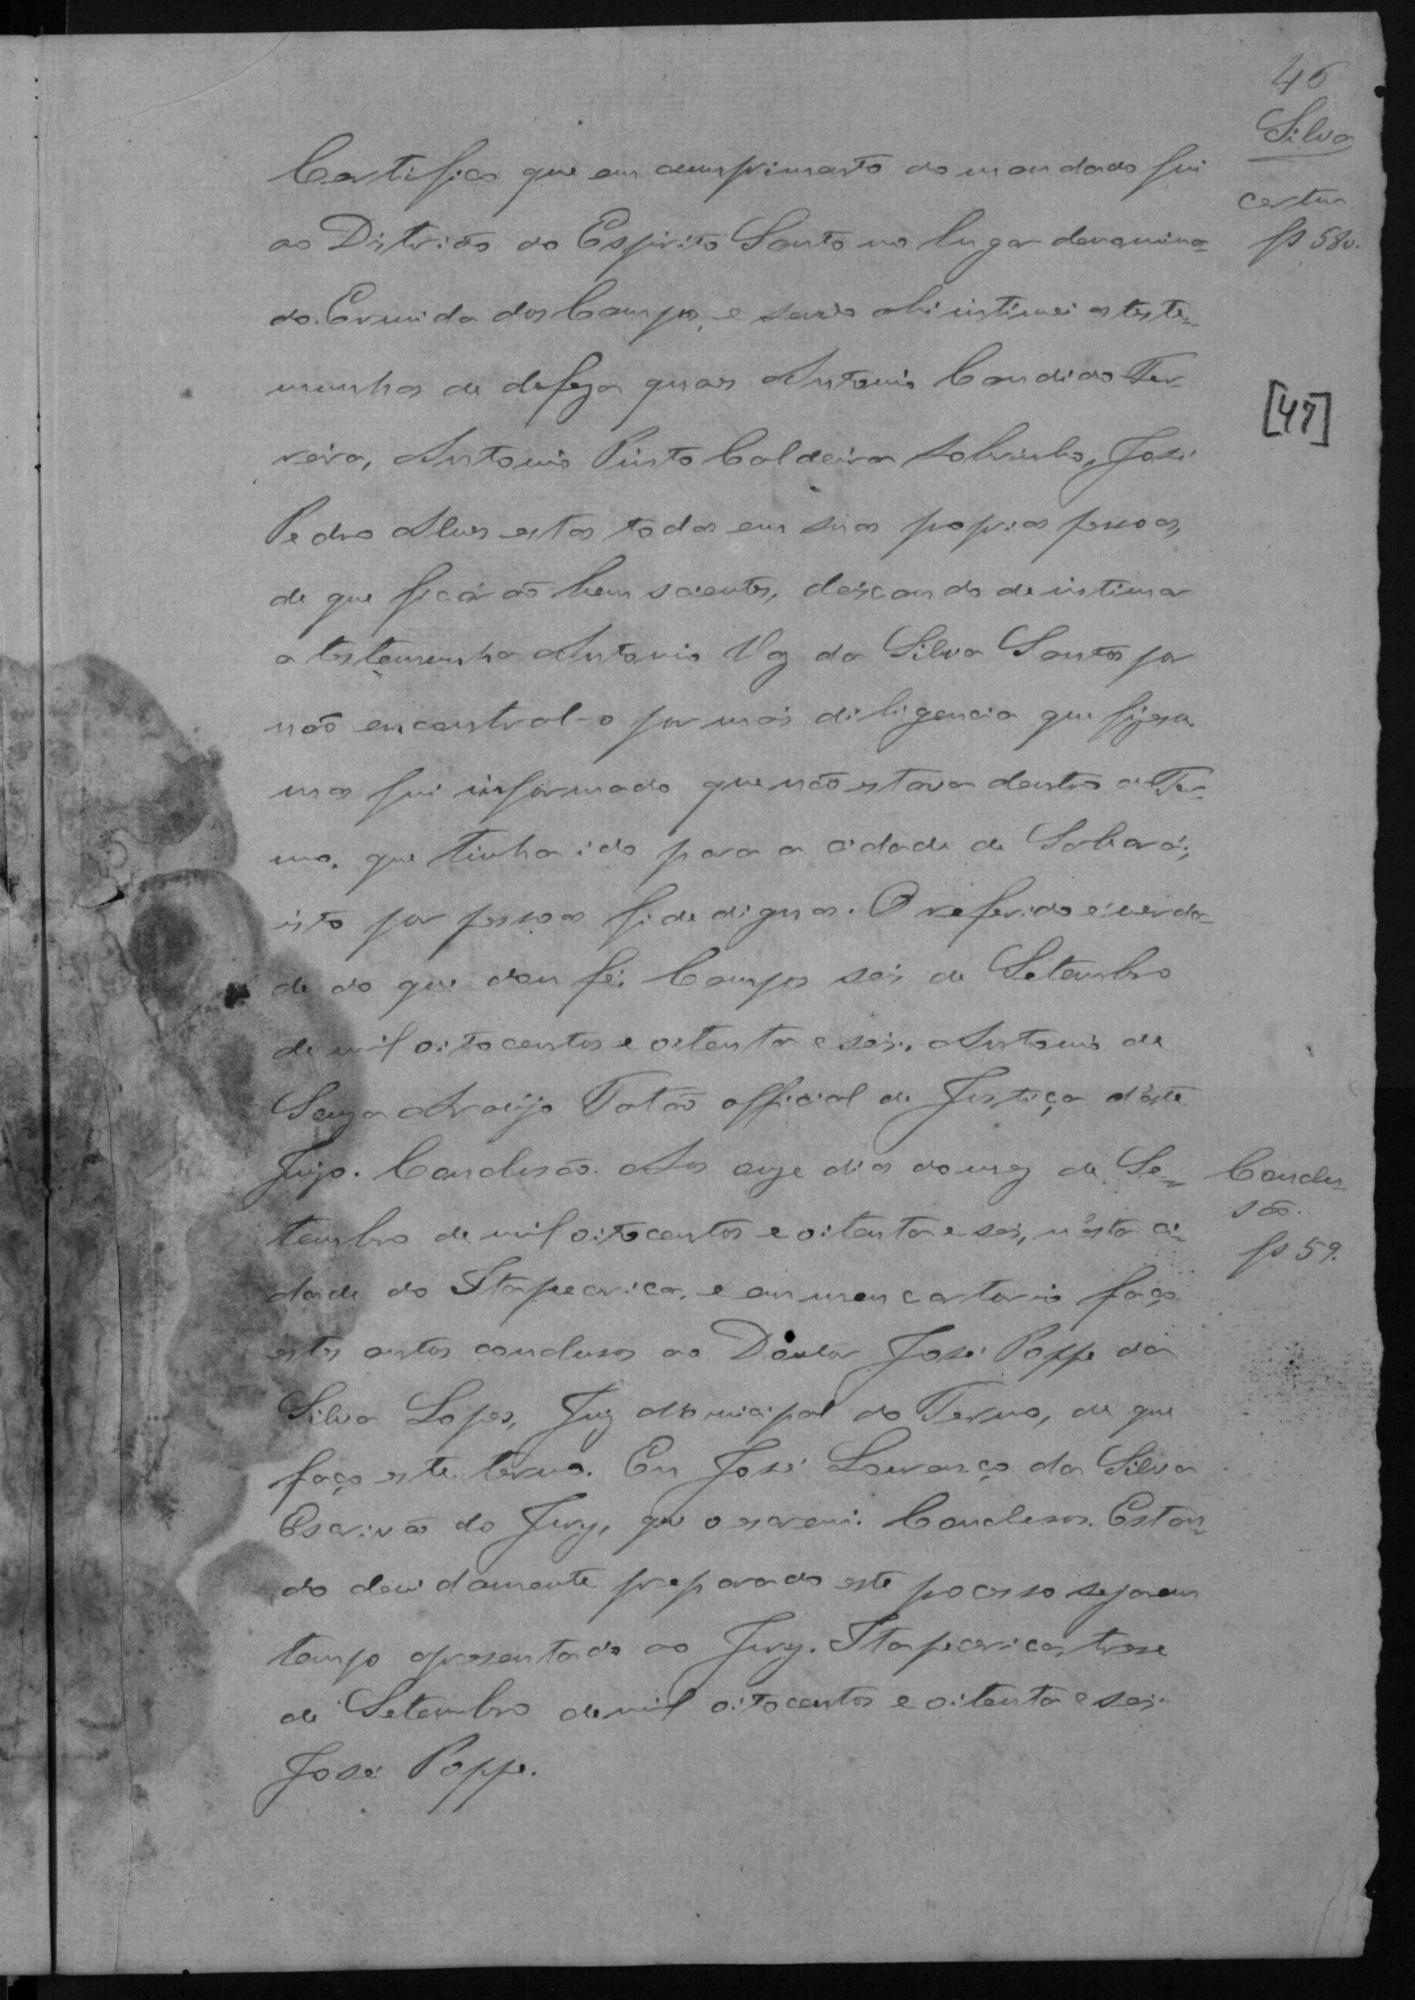 46
Silva
Certifico que em cumprimento do mandado fui
ao Districto do Espirito Santo no lugar denomina-
do Ermida dos Campos, e sendo ahi intimei as teste-
munhas de defeza quaes Antonio Candido Fer-
reira, Antonio Pinto Caldeira Sobrinho, José
Pedro Alves estas todas em suas proprias pessoas,
de que ficárão bem scientes, deixando de intimar
a testemunha Antonio Vaz da Silva Santos por
não encontral-o por mais diligencia que fizesse
mas fui informado que não estava dentro do Ter-
mo, que tinha ido para a cidade de Sabará;
isto por pessoas fidedignas. O referido é verda-
de do que dou fé. Campos seis de Setembro
de mil oitocentos e oitenta e seis. Antonio de
Souza Araújo Tatão official de Justiça d'este
Juizo. Conclusão. Aos onze dias do mez de Se-
tembro de mil oitocentos e oitenta e seis, n'esta ci-
dade do Itapecerica, e em meu cartorio faço
estes autos conclusos ao Doutor José Poppe da
Silva Lopes, Juiz Municipal do Termo, de que
faço este termo. Eu José Lourenço da Silva
Escrivão do Jury, que o escrevi. Conclusos. Estan-
do devidamente preparado este pocesso seja em
tempo apresentado ao Jury. Itapecerica, treze
de Setembro de mil oitocentos e oitenta e seis.
José Poppe.
certm
fs 58v.
[47]
Conclu-
são.
fs 59.